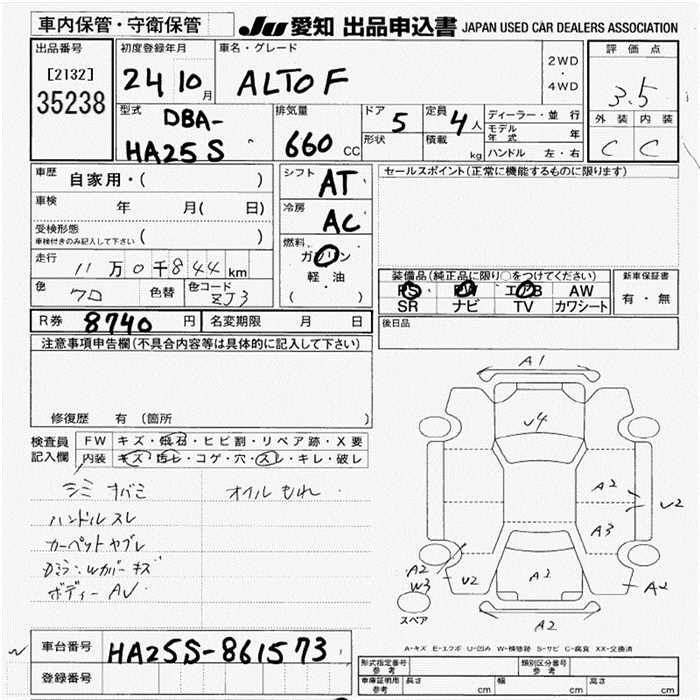 車内保管・守衛保管
JU 愛知 出品申込書 JAPAN USED CAR DEALERS ASSOCIATION
出品番号
[2132]
35238
初度登録年月
24 10月
車名・グレード
ALTO F
2WD
・
4WD
評価点
3.5
外装 内装
C C
型式
DBA-
HA25S
排気量
660 CC
ドア 5
形状
定員 4人
積載 kg
ディーラー・並行
モデル年式 年
ハンドル 左・右
車歴 自家用・( )
車検 年 月( 日)
受検形態
車検付きのみ記入して下さい ( )
走行 11万0千844km
色 クロ 色替 色コード ZJ3
シフト AT
冷房 AC
燃料 ガソリン
軽・油
( )
セールスポイント(正常に機能するものに限ります)
装備品(純正品に限り○をつけてください)
PS PW エアB AW
SR ナビ TV カワシート
新車保証書
有・無
R券 8740円 名変期限 月 日
後日品
注意事項申告欄(不具合内容等は具体的に記入して下さい)
修復歴 有 (箇所 )
検査員記入欄
FW キズ・飛石・ヒビ割・リペア跡・X要
内装 キズ・汚レ・コゲ・穴・スレ・キレ・破レ
シミ オバミ オイルもれ
ハンドルスレ
カーペットヤブレ
Dミラー:Wカバーキズ
ボディーAU
A1
U4
A2
U2
A3
A2
A2
W3
U2
A2
A2
スペア
A-キズ E-エクボ U-凹み W-補修跡 S-サビ C-腐食 XX-交換済
車台番号 HA25S-861573
登録番号
形式指定番号 参考 類別区分番号 参考
車庫証明用 参考 長さ cm 幅 cm 高さ cm